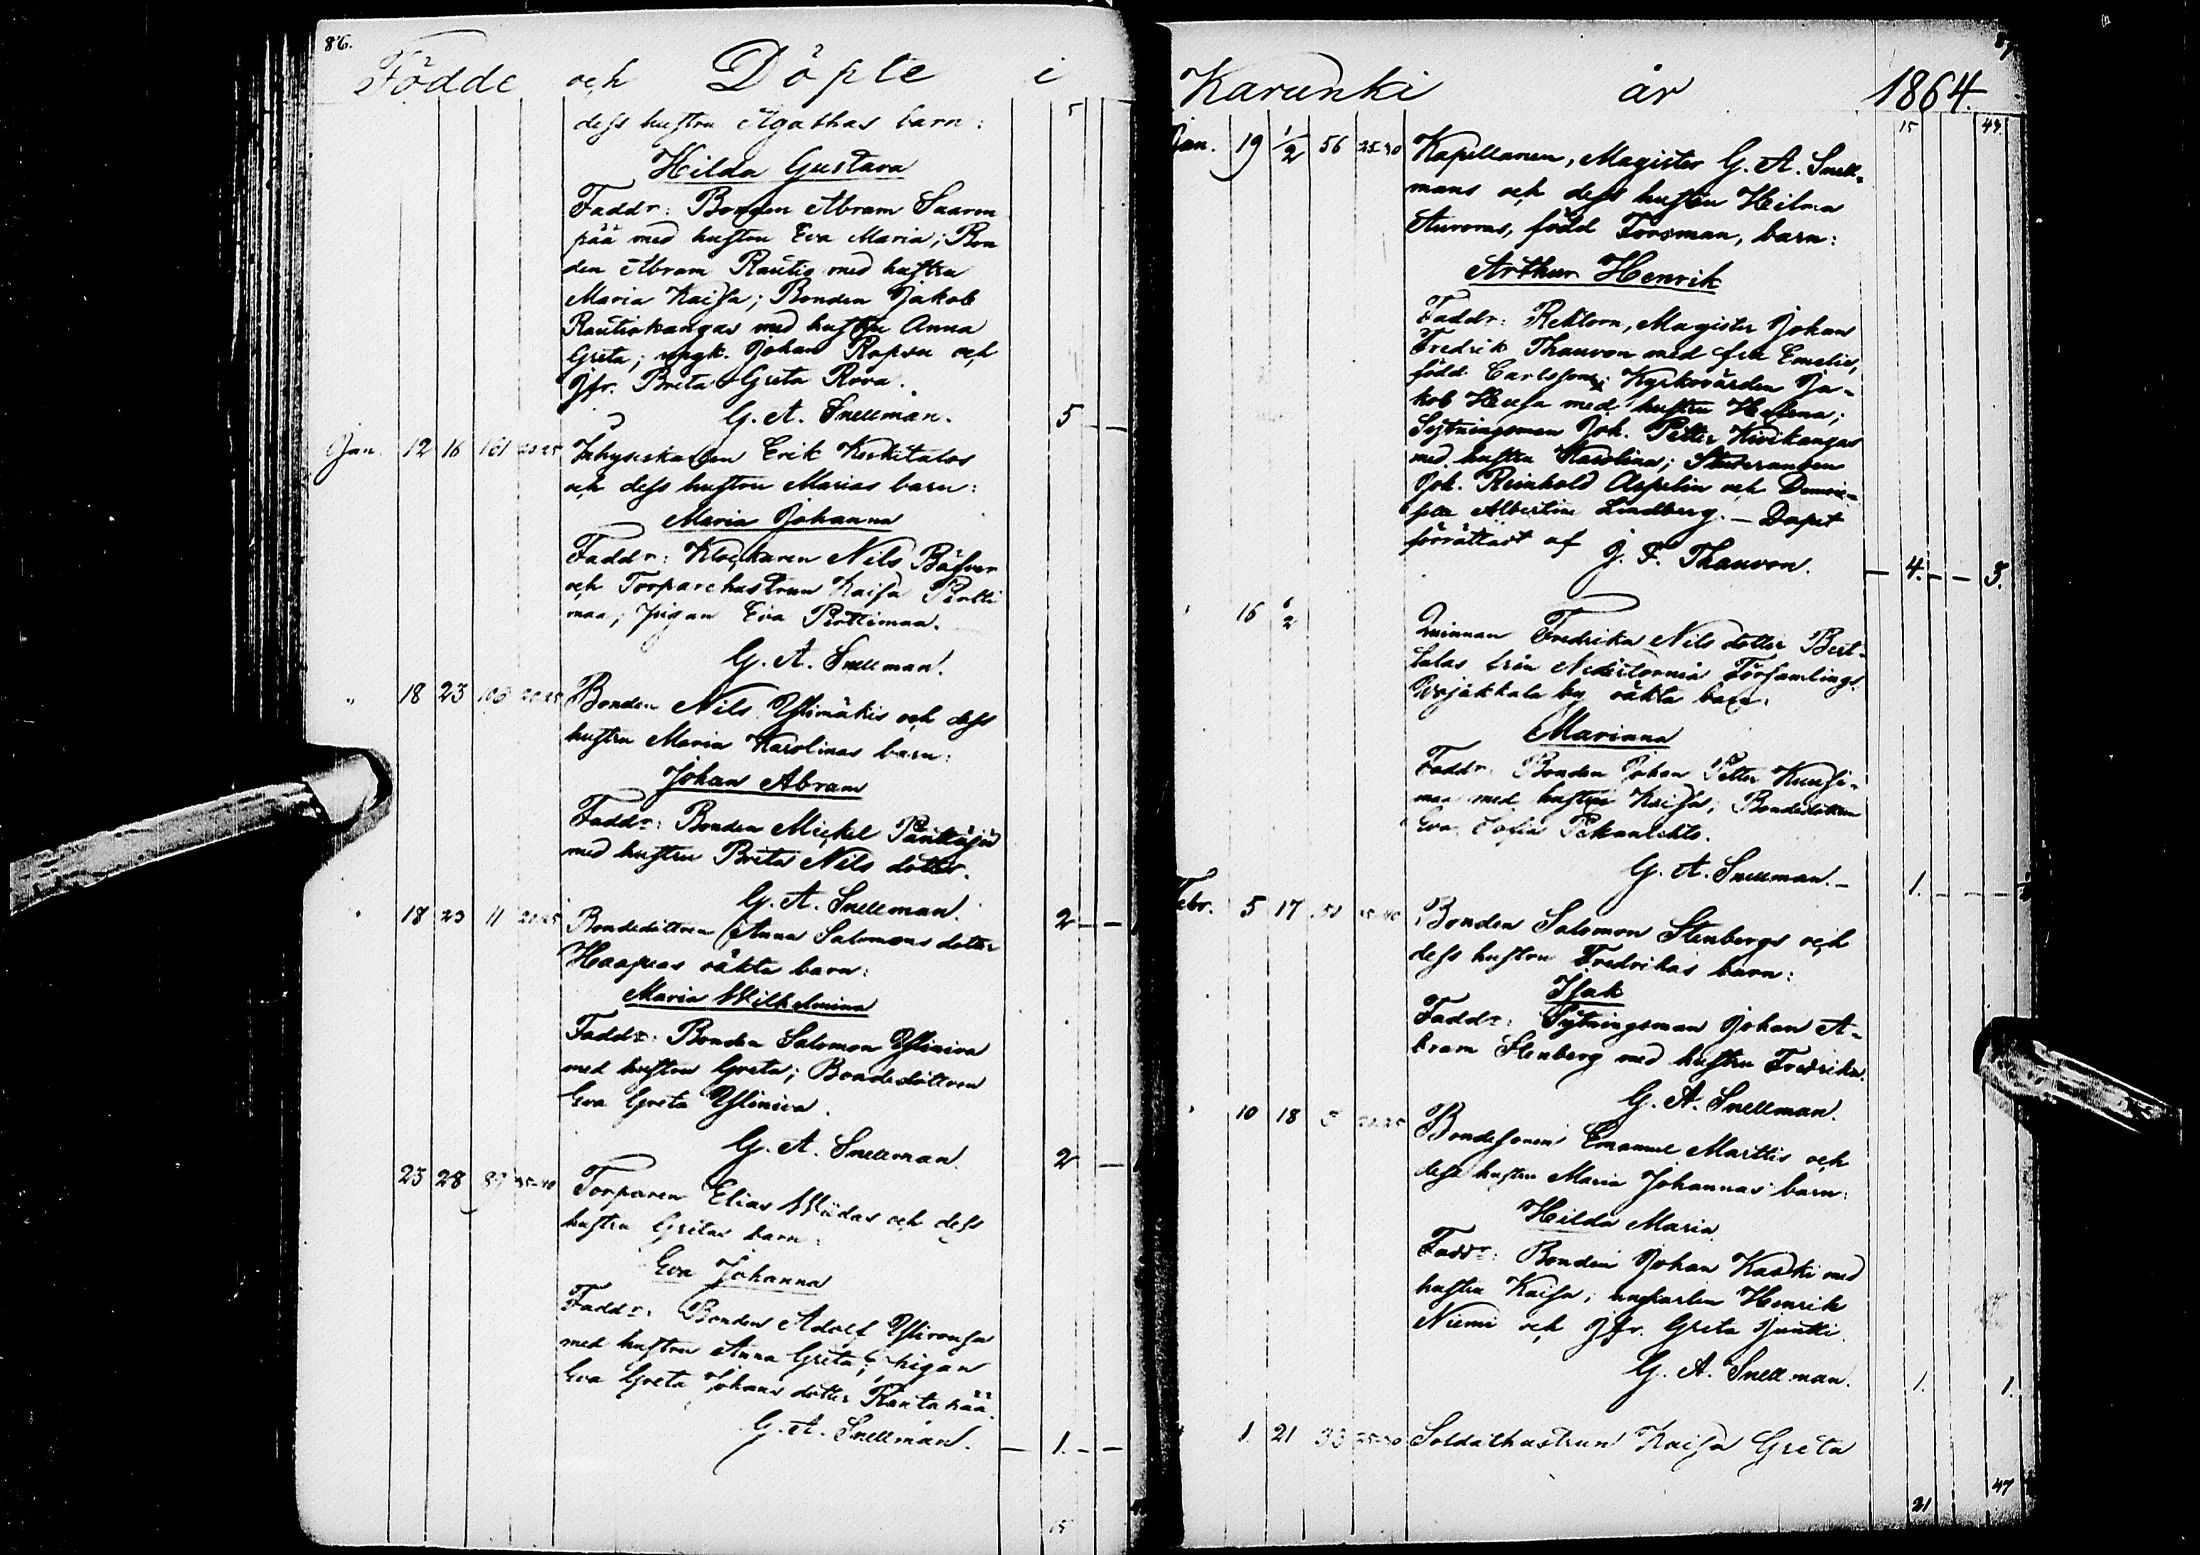 86.
Födde och Döpte i
dess hustru Agathas barn:
Hilda Gustava
Faddr: Bonden Abram Saaren
pää med hustru Eva Maria; Bon
den Abram Rautio med hustru
Maria Kaisa; Bonden Jakob
Rautiokangas med hustru Anna
Greta; ungk. Johan Rapsu och
Jfr. Brita Greta Rova.
G. A. Snellman.
5
Jan. 12 16 101 20 25 Erik Kurkitalos
och dess hustru Marias barn:
Maria Johanna
Faddr: Klockaren Nils Bäfver
och Torparehustrun Kaisa Pertti
maa; Pigan Eva Perttimaa.
G. A. Snellman.
" 18 23 106 20 25 Bonden Nils Ylimäkis och dess
hustru Maria Karolinas barn:
Johan Abram
Faddr: Bonden Mickel
med hustru Brita Nils dotter.
G. A. Snellman.
18 23 11 20 25 Bondedottren Anna Salomons dotter
Haapas oäkta barn:
2
Maria Wilhelmina
Faddr: Bonden Salomon Yliniva
med hustru Greta; Bondedottren
Eva Greta Yliniva.
G. A. Snellman.
2
25 28 89 35-40 Torparen Elias Wiidas och dess
hustru Gretas barn:
Eva Johanna
Faddr: Bonden Adolf
med hustru Anna Greta; Pigan
Eva Greta Johans dotter Rautapää.
G. A. Snellman.
1.
15
87
Karunki år 1864.
15 44.
Jan. 19 1/2 56 25-30 Kapellanen, Magister G. A. Snell-
mans och dess hustru Hilma
Auroras, född Forsman, barn:
Arthur Henrik
Faddr: Rektorn, Magister Johan
Fredrik Thauvon med fru Emelie,
född Carlsson; Kyrkovärden Ja-
kob Heusa med hustru Helena;
Sytningsman Joh. Petter Kivikangas
med hustru Karolina; Studeranden
Joh. Reinhold Aspelin och Demoi-
selle Albertine Lindberg. — Dopet
förrättadt af
J. F. Thauvon.
4. 3.
16 6/2 Qvinnan Fredrika Nils dotter Bert-
talas från Nedertorneå Församlings
Wojakkala by oäkta barn:
Marianna
Faddr: Bonden Johan Petter Kuusi-
maa med hustru Kaisa; Bondedottren
Eva Sofia
G. A. Snellman.
1.
Febr. 5 17 Bonden Salomon Stenbergs och
dess hustru Fredrikas barn:
Isak
Faddr: Sytningsman Johan A-
bram Stenberg med hustru Fredrika.
G. A. Snellman.
10 18 3 Bondesonen Emanuel Marttis och
dess hustru Maria Johannas barn:
Hilda Maria
Faddr: Bonden Johan Kaski med
hustru Kaisa; ungkarlen Henrik
Niemi och Jfr. Greta Juntti.
G. A. Snellman.
1. 1.
1. 21 33 25-30 Soldathustrun Kaisa Greta
21 47